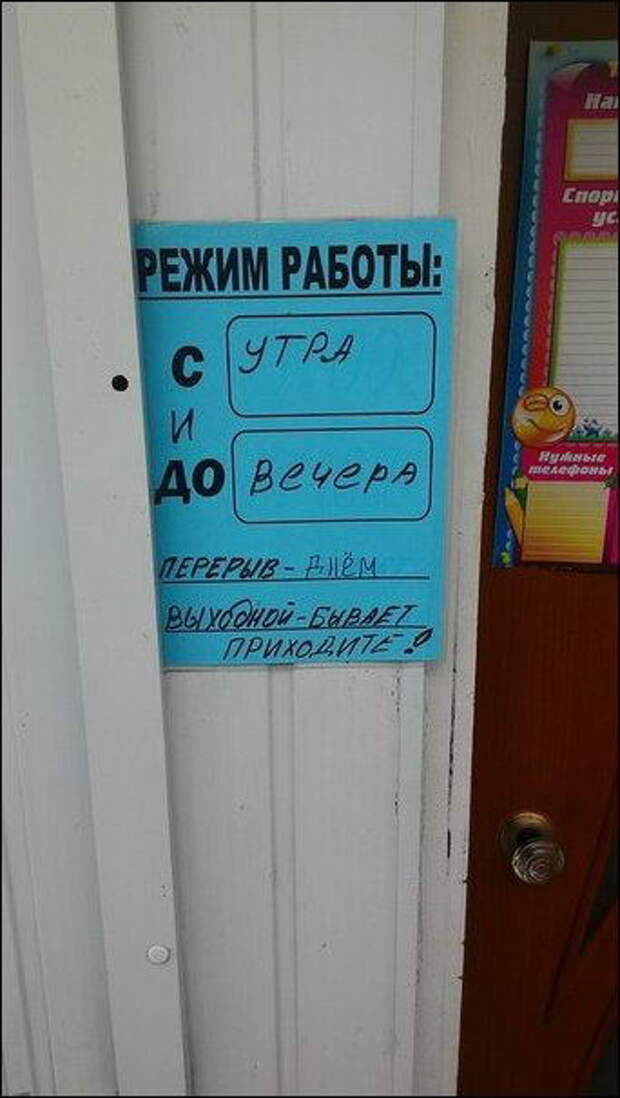 РЕЖИМ РАБОТЫ:
С УТРА
И
ДО ВЕЧЕРА
ПЕРЕРЫВ - ДНЁМ
ВЫХОДНОЙ - БЫВАЕТ
ПРИХОДИТЕ!
Нужные
телефоны